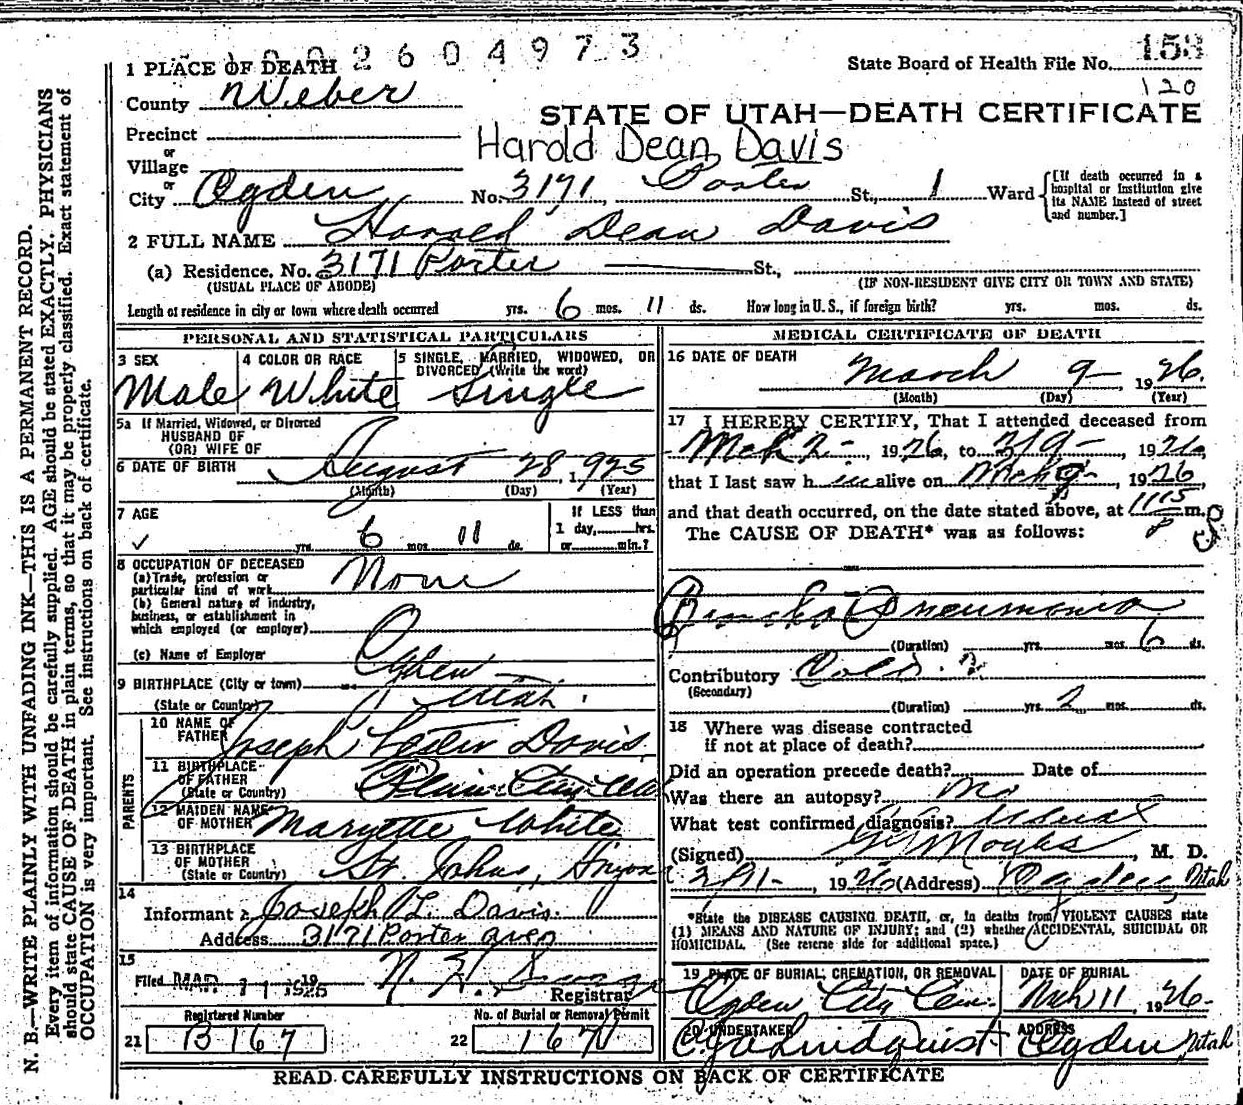 1002604973
153
1 PLACE OF DEATH
State Board of Health File No.
120
County Weber
STATE OF UTAH—DEATH CERTIFICATE
Precinct
or
Harold Dean Davis
Village
or
City Ogden No. 3171 Porter St., 1 Ward
[If death occurred in a hospital or institution give its NAME instead of street and number.]
2 FULL NAME Harold Dean Davis
(a) Residence. No. 3171 Porter St.,
(USUAL PLACE OF ABODE) (IF NON-RESIDENT GIVE CITY OR TOWN AND STATE)
Length of residence in city or town where death occurred yrs. 6 mos. 11 ds. How long in U. S., if foreign birth? yrs. mos. ds.
PERSONAL AND STATISTICAL PARTICULARS
3 SEX
Male
4 COLOR OR RACE
White
5 SINGLE, MARRIED, WIDOWED, OR DIVORCED (Write the word)
Single
5a If Married, Widowed, or Divorced
HUSBAND OF
(OR) WIFE OF
6 DATE OF BIRTH August 28, 1925
(Month) (Day) (Year)
7 AGE
yrs. 6 mos. 11 ds.
If LESS than
1 day,......hrs.
or......min.?
8 OCCUPATION OF DECEASED
(a) Trade, profession or
particular kind of work None
(b) General nature of industry,
business, or establishment in
which employed (or employer)
(c) Name of Employer
9 BIRTHPLACE (City or town) Ogden
(State or Country) Utah
PARENTS
10 NAME OF FATHER Joseph Lester Davis
11 BIRTHPLACE OF FATHER
(State or Country) Plain City
12 MAIDEN NAME OF MOTHER Maryette White
13 BIRTHPLACE OF MOTHER
(State or Country) St Johns,
14
Informant Joseph L. Davis
Address 3171 Porter aven
15
Filed MAR 11 1926
Registrar
Registered Number
No. of Burial or Removal Permit
21 B 167
22
MEDICAL CERTIFICATE OF DEATH
16 DATE OF DEATH
March 9 1926
(Month) (Day) (Year)
17 I HEREBY CERTIFY, That I attended deceased from
Mch 2 - 1926, to 3/9 - 1926,
that I last saw h im alive on Mch 9 1926,
and that death occurred, on the date stated above, at 11 15 P m.
The CAUSE OF DEATH* was as follows:
Broncho Pneumonia
(Duration) yrs. mos. 6 ds.
Contributory Cold
(Secondary)
(Duration) yrs. 2 mos. ds.
18 Where was disease contracted
if not at place of death?
Did an operation precede death? Date of
Was there an autopsy? No
What test confirmed diagnosis?
(Signed) M. D.
1926 (Address) Ogden, Utah
*State the DISEASE CAUSING DEATH, or, in deaths from VIOLENT CAUSES, state
(1) MEANS AND NATURE OF INJURY; and (2) whether ACCIDENTAL, SUICIDAL OR
HOMICIDAL. (See reverse side for additional space.)
19 PLACE OF BURIAL, CREMATION, OR REMOVAL
Ogden City Cem.
DATE OF BURIAL
Mch 11, 1926
20 UNDERTAKER
Lindquist
ADDRESS
Ogden Utah
READ CAREFULLY INSTRUCTIONS ON BACK OF CERTIFICATE
N. B.—WRITE PLAINLY WITH UNFADING INK—THIS IS A PERMANENT RECORD.
Every item of information should be carefully supplied. AGE should be stated EXACTLY. PHYSICIANS
should state CAUSE OF DEATH in plain terms, so that it may be properly classified. Exact statement of
OCCUPATION is very important. See instructions on back of certificate.